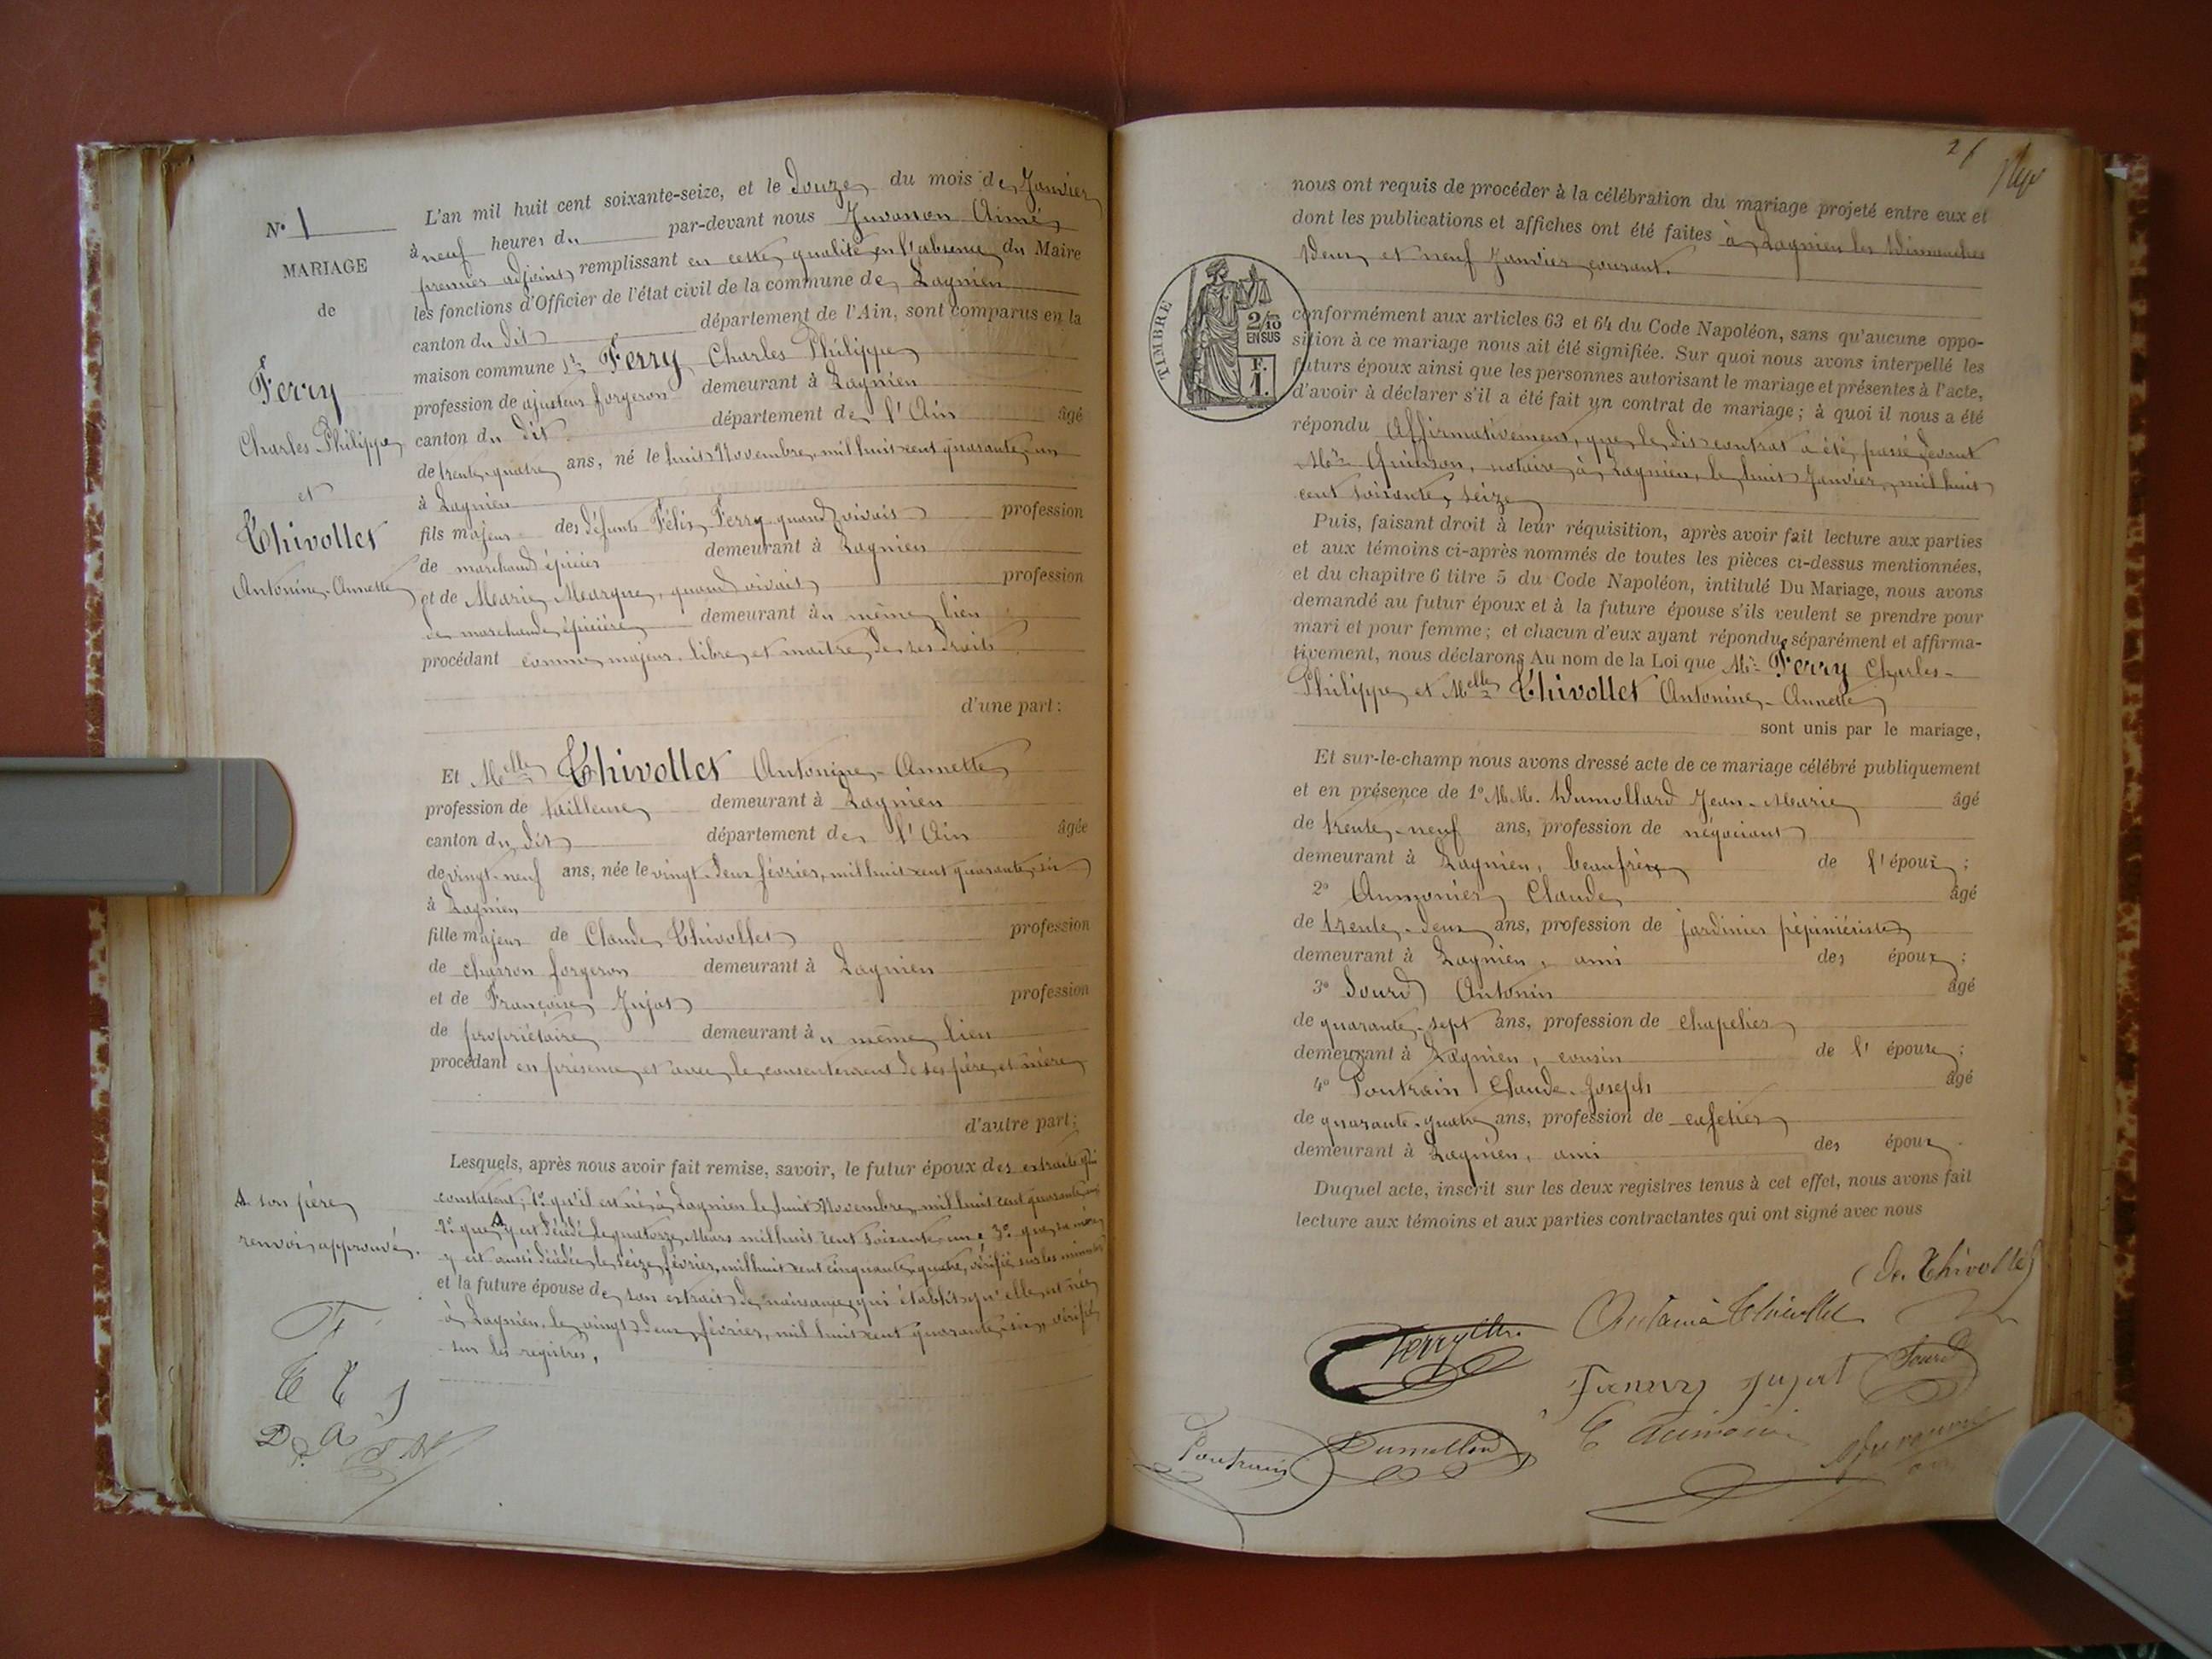 N° 1
MARIAGE
de
Ferry
Charles Philippe
et
Thivollet
Antonine-Annette
L'an mil huit cent soixante-seize, et le Douze du mois de Janvier
à neuf heures du par-devant nous Juvanon Aimé
premier adjoint remplissant en cette qualité en l'absence du Maire
les fonctions d'Officier de l'état civil de la commune de Lagnieu
canton du dit département de l'Ain, sont comparus en la
maison commune Mr Ferry Charles Philippe
profession de ajusteur forgeron demeurant à Lagnieu
canton du dit département de l'Ain âgé
de trente-quatre ans, né le huit Novembre, mil huit cent quarante-un
à Lagnieu
fils majeur des défunts Félix Ferry quand vivait profession
de marchand épicier demeurant à Lagnieu
et de Marie Marque, quand vivait profession
de marchande épicière demeurant à u même lieu
procédant comme majeur libre et maître de ses droits
d'une part :
Et Melle Thivollet Antonine-Annette
profession de tailleuse demeurant à Lagnieu
canton du dit département de l'Ain âgée
de vingt-neuf ans, née le vingt-deux février, mil huit cent quarante-six
à Lagnieu
fille majeur de Claude Thivollet profession
de charron forgeron demeurant à Lagnieu
et de Françoise Jujat profession
de propriétaire demeurant à u même lieu
procédant en présence et avec le consentement de ses père et mère
d'autre part ;
Lesquels, après nous avoir fait remise, savoir, le futur époux des extraits qui
constatent, 1° qu'il est né à Lagnieu le huit Novembre, mil huit cent quarante-un
2° que A y est décédé le quatorze Mars mil huit cent soixante-un, 3° que sa mère
y est aussi décédée le seize février, mil huit cent cinquante-quatre, vérifié sur les minutes
et la future épouse de son extrait de naissance qui établit qu'elle est née
à Lagnieu, le vingt-deux février, mil huit cent quarante-six, vérifié
sur les registres.
A son père
renvoi approuvé.
F
T T J
D A
nous ont requis de procéder à la célébration du mariage projeté entre eux et
dont les publications et affiches ont été faites à Lagnieu les Dimanches
Deux et neuf Janvier courant.
TIMBRE
2/10
EN SUS
F.
1.
conformément aux articles 63 et 64 du Code Napoléon, sans qu'aucune oppo-
sition à ce mariage nous ait été signifiée. Sur quoi nous avons interpellé les
futurs époux ainsi que les personnes autorisant le mariage et présentes à l'acte,
d'avoir à déclarer s'il a été fait un contrat de mariage ; à quoi il nous a été
répondu Affirmativement, que le dit contrat a été passé devant
Me Quinson, notaire à Lagnieu, le huit Janvier, mil huit
cent soixante, seize
Puis, faisant droit à leur réquisition, après avoir fait lecture aux parties
et aux témoins ci-après nommés de toutes les pièces ci-dessus mentionnées,
et du chapitre 6 titre 5 du Code Napoléon, intitulé Du Mariage, nous avons
demandé au futur époux et à la future épouse s'ils veulent se prendre pour
mari et pour femme ; et chacun d'eux ayant répondu séparément et affirma-
tivement, nous déclarons Au nom de la Loi que Mr Ferry Charles-
Philippe et Melle Thivollet Antonine-Annette
sont unis par le mariage,
Et sur-le-champ nous avons dressé acte de ce mariage célébré publiquement
et en présence de 1° M.M. Dumollard Jean-Marie âgé
de trente-neuf ans, profession de négociant
demeurant à Lagnieu, beaufrère de l'époux ;
2° Claude âgé
de trente-deux ans, profession de jardinier pépiniériste
demeurant à Lagnieu, ami des époux ;
3° Sourd Antonin âgé
de quarante-sept ans, profession de chapelier
demeurant à Lagnieu, cousin de l'épouse ;
4° Poutrain Claude-Joseph âgé
de quarante-quatre ans, profession de cafetier
demeurant à Lagnieu, ami des époux.
Duquel acte, inscrit sur les deux registres tenus à cet effet, nous avons fait
lecture aux témoins et aux parties contractantes qui ont signé avec nous
Thivollet
Ferry Antonia Thivollet
Jujat Sourd
Poutrain Dumollard